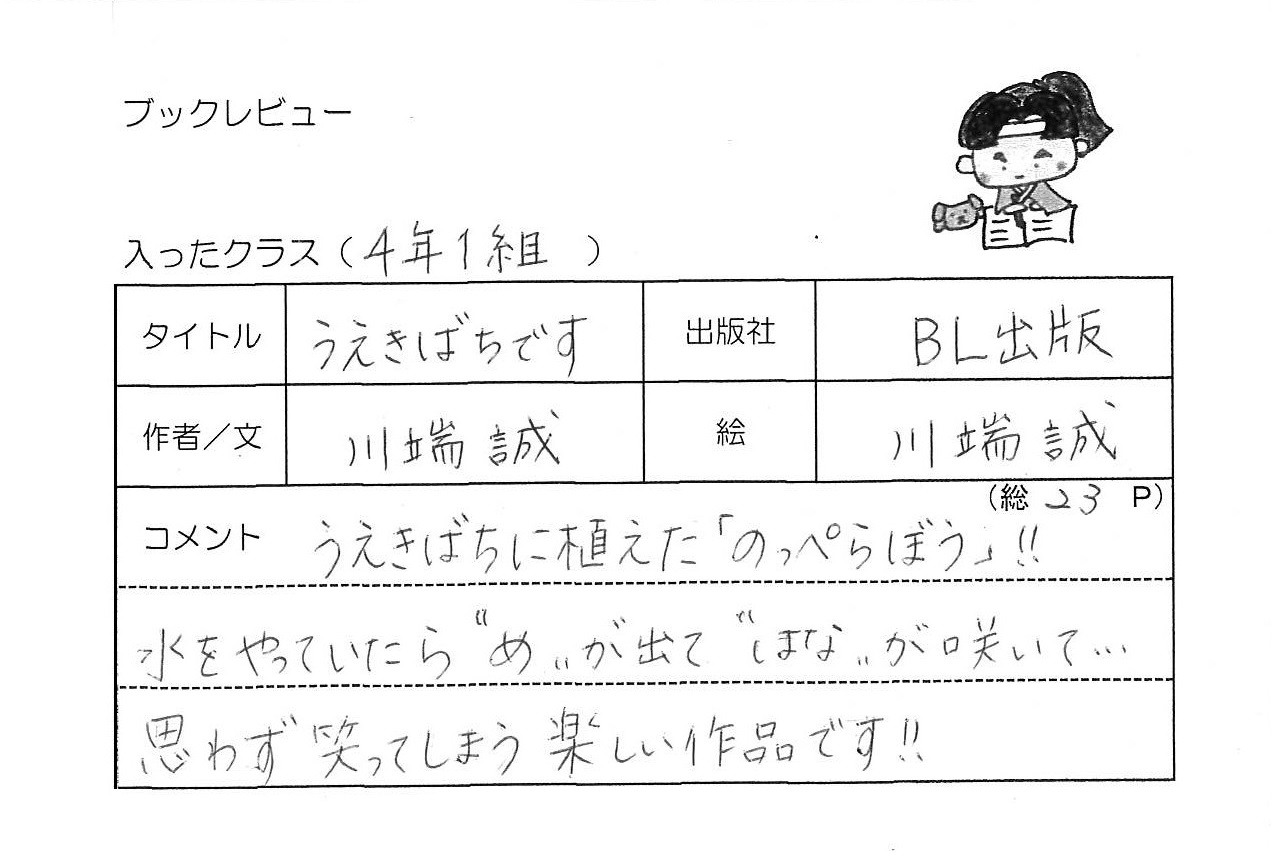 ブックレビュー
入ったクラス（4年1組　）
タイトル　うえきばちです　出版社　BL出版
作者／文　川端 誠　絵　川端 誠
（総 23 P）
コメント　うえきばちに植えた「のっぺらぼう」!!
水をやっていたら〝め〟が出て〝はな〟が咲いて…
思わず笑ってしまう楽しい作品です!!